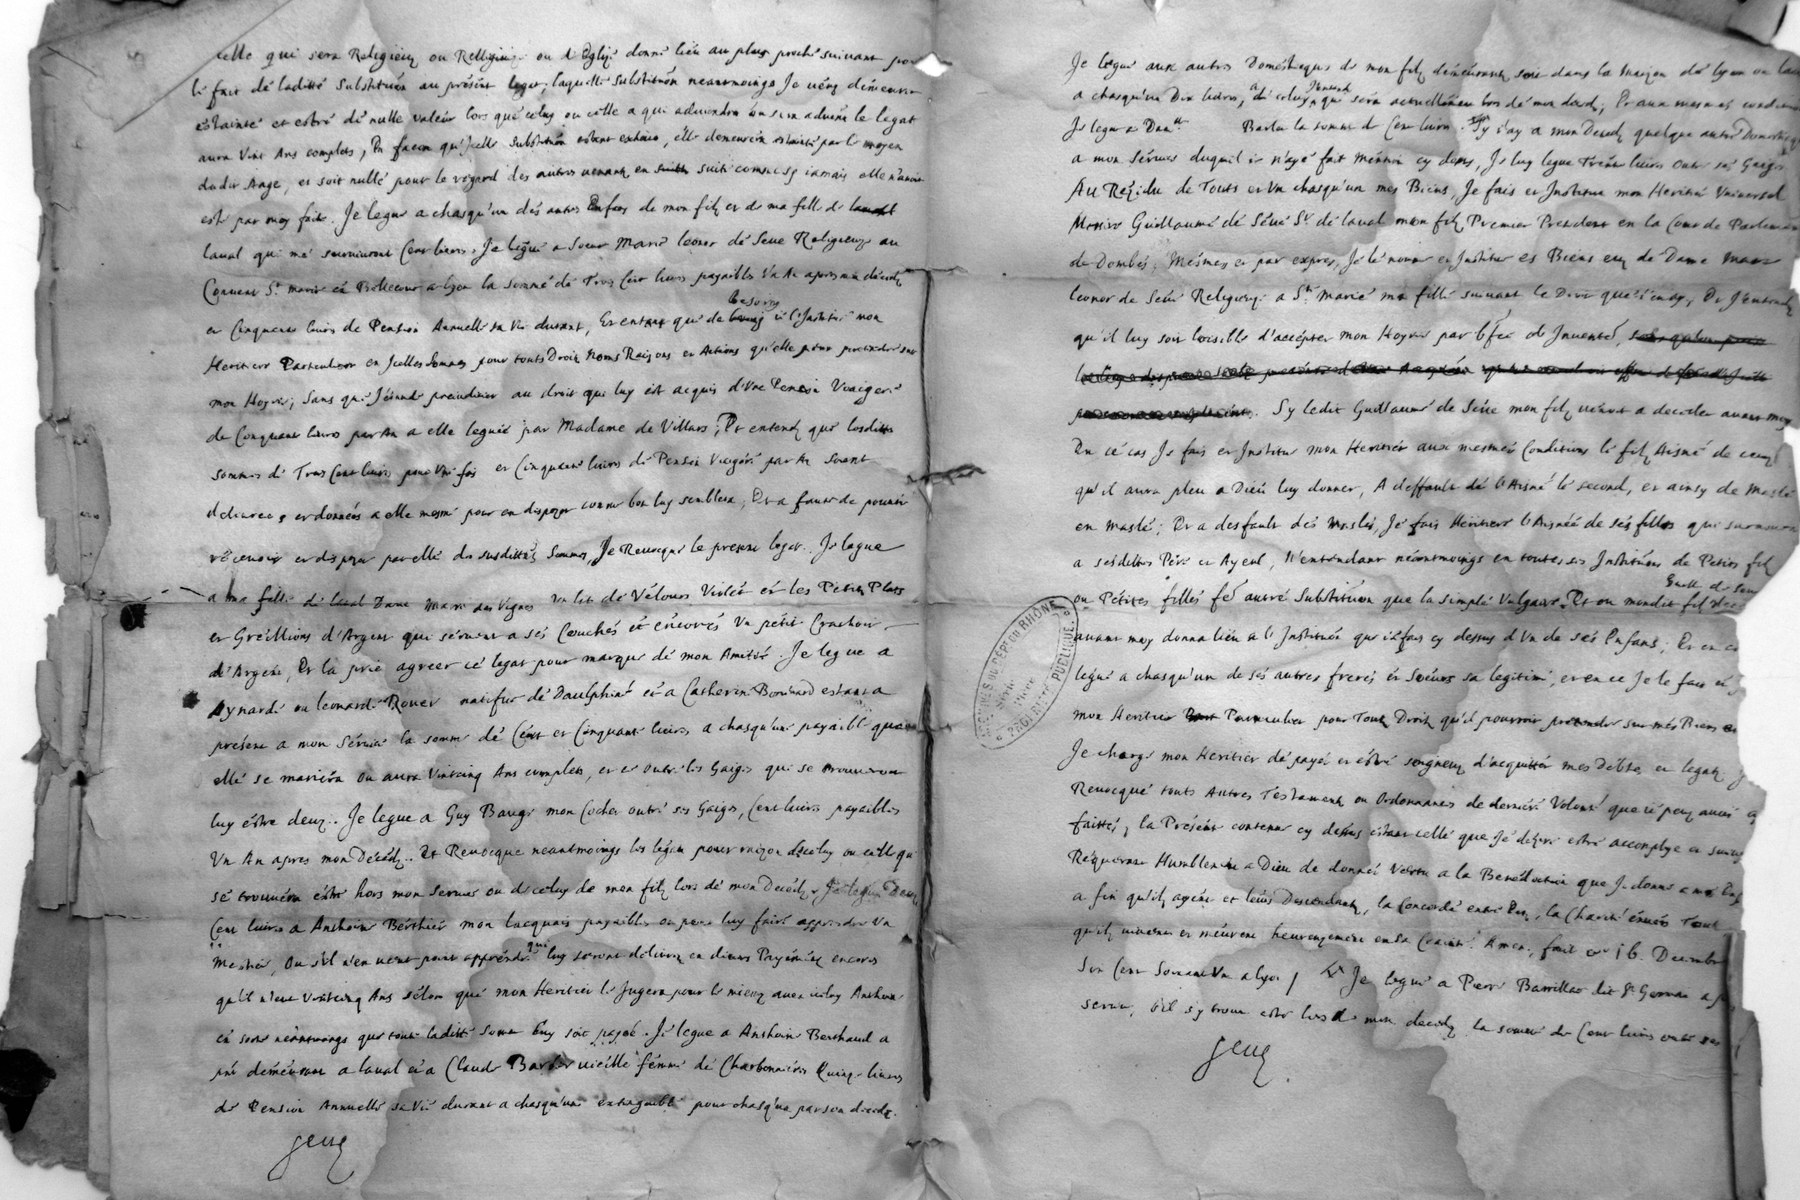 celle qui sera Religieux ou Religieuse ou d'Eglise donne lieu au plus proche suivant pour
le fait de laditte Substitution au présent legat, laquelle Substitution neantmoings Je veux demeurer
estainte et estre de nulle valeur lors que celuy ou celle a qui adviendra ou sera advenu le legat
aura Vint Ans complets, En facon qu'Icelle Substitution estant estainte, elle demeurera estainte par le moyen
dudit Aage, et soit nulle pour le regard des autres venants en suite comme sy iamais elle n'avoit
esté par moy faite. Je legue a chasqu'un des autres Enfans de mon filz et de ma fille de
laval qui me survivront Cent livres. Je legue a Soeur Marie leonor de Seve Religieuse au
Convent Ste marie en Bellecour a lyon la somme de Trois Cent livres payables Un An apres mon décedz
et Cinquante livres de Pension Annuelle sa Vie durant, Et entant que de besoing ie l'Institue mon
Heritiere Particuliere en Icelles Sommes pour touts Droits Noms Raisons et Actions qu'elle peut pretendre sur
mon Hoyrie; Sans que J'entende preiudicier au droit qui luy est acquis d'Une Pension Viagere
de Cinquante livres par An a elle leguée par Madame de Villars; Et entendz que lesdittes
sommes de Trois Cent livres pour Une fois et Cinquante livres de Pension Viagere par An soient
delivrees et données a elle mesme pour en disposer comme bon luy semblera; Et a faute de pouvoir
recevoir et disposer par elle desdittes Sommes, Je Revocque le present legat. Je legue
a ma fille de laval Dame Marie des Vignes un lit de Velours Violet et les Petits Plats
et Greillions d'Argent qui servent a ses Couches et encores Un petit Crachoir
d'Argent, Et la prie agreer ce legat pour marque de mon Amitié. Je legue a
Aynarde ou leonarde Rouer natifve de Dauphiné et a Catherine Bouvard estant a
present a mon Service la somme de Cent et Cinquante livres a chasqu'une payable quand
elle se mariera ou aura Vintcinq Ans complets, et ce outre les Gaiges qui se trouveront
luy estre deuz. Je legue a Guy Bauge mon Cocher outre ses Gaiges, Cent livres payables
Un An apres mon Decedz. Et Revocque neantmoings les legats pour raizon de celuy ou celle qui
se trouvera estre hors mon Service ou de celuy de mon filz lors de mon Decedz. Je legue Deux
Cent livres a Anthoine Berthier mon lacquais payables ou pour luy faire apprendre Un
Mestier, Ou s'il n'en veut point apprendre qui luy seront delivrez en divers Payements encores
qu'il n'eut Vintcinq Ans selon que mon Heritier le Jugera pour le mieux avec iceluy Anthoine
en sorte neantmoings que toute laditte Somme luy soit payée. Je legue a Anthoine Berthaud a
pnt demeurant a laval et a Claude Barbier vieille femme de Charbonnieres Quinze livres
de Pension Annuelle sa Vie durant a chasqu'un extinguible pour chasque par son decedz.
Seve
Je legue aux autres Domestiques de mon filz demeurants soit dans la Maizon de lyon ou laval
a chasqu'un Dix livres, a celuy qui sera actuellement lors de mon decedz; Et aux mesmes conditions
Je legue a Damlle Barbe la somme de Cent livres. Sy i'ay a mon Decedz quelque autre Domestique
a mon Service duquel ie n'aye fait Mention cy dessus, Je luy legue Trente livres outre ses Gaiges
Au Rezidu de Touts et Un chasqu'un mes Biens, Je fais et Institue mon Heritier Universel
Messire Guillaume de Seve Sr de laval mon filz Premier President en la Cour de Parlement
de Dombes; Mesmes et par expres, Je le nomme et Institue es Biens de Dame Marie
leonor de Seve Religieuse a Ste Marie ma fille suivant le Droit que i'en ay, Et J'entendz
qu'il luy soit loisible d'accepter mon Hoyrie par bfce de Inventre,
Sy ledit Guillaume de Seve mon filz venoit a deceder avant moy
En ce cas Je fais et Institue mon Heritier aux mesmes Conditions le filz Aisné de ceux
qu'il aura pleu a Dieu luy donner, A deffault de l'Aisné le second, et ainsy de Masle
en masle; Et a desfault des Masles, Je fais Heritiere l'Aisnée de ses filles qui survivra
a sesdittes Pere et Ayeul, N'entendant neantmoings en toutes ces Institutions de Petits filz
ou Petites filles fere autre Substitution que la simple Vulgaire. Et ou mondit filz Guille de Seve
avant moy donna lieu a l'Institution que ie fais cy dessus d'Un de ses Enfans; Et en ce
legue a chasqu'un de ses autres freres et Soeurs sa legitime, et en ce Je le fais
mon Heritier Particulier pour Tout Droit qu'il pourroit pretendre sur mes Biens
Je charge mon Heritier de payer et estre soigneux d'acquitter mes Debtes et legatz
Revocque touts Autres Testaments ou Ordonnances de derniere Volonté que ie peux avoir
faittes, la Presente contenue cy dessus estant celle que Je desire estre accomplye et suivie
Requerant Humblement a Dieu de donner Vertu a la Benediction que Je donne a mes Enfans
a fin qu'ilz ayent et leurs Descendants, la Concorde entre Eux, la Charité envers Touts
qu'ilz vivent et meurent heureuzement en sa Crainte. Amen, fait ce 16. Decembre
Six Cent Soixante Un a lyon / Je legue a Pierre Barrillac dit St Gervais
serve, s'il s'y trouve estre lors de mon decedz la somme de Cent livres outre ses
Seve
ARCHIVES DU DÉPT DU RHÔNE
PROPRIÉTÉ PUBLIQUE